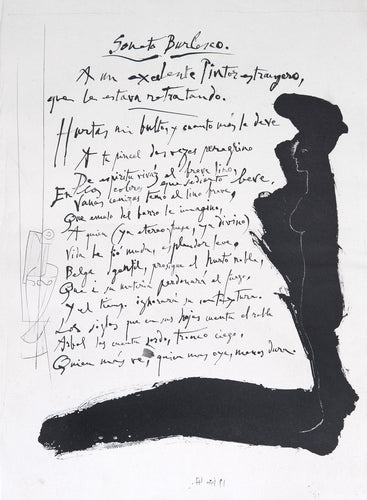 Soneto Burlesco.
A un excelente Pintor estrangero,
que le estava retratando.
Hurtas mi bulto, y cuanto más le deve
A tu pincel dos vezes peregrino
De espiritu vivaz el breve lino
En los colores que sediento beve,
Vanas cenizas temo al lino breve,
Que emulo del barro le imagino,
A quien (ya etereo fuese, ya divino)
Vida le fió muda, esplendor leve.
Belga gentil, prosigue el hurto noble,
Que a su materia perdonará el fuego,
Y el tiempo ignorará su contextura.
Los siglos que en sus hojas cuenta el roble
Arbol los cuenta sordo, tronco ciego,
Quien más ve, quien mas oye, menos dura.